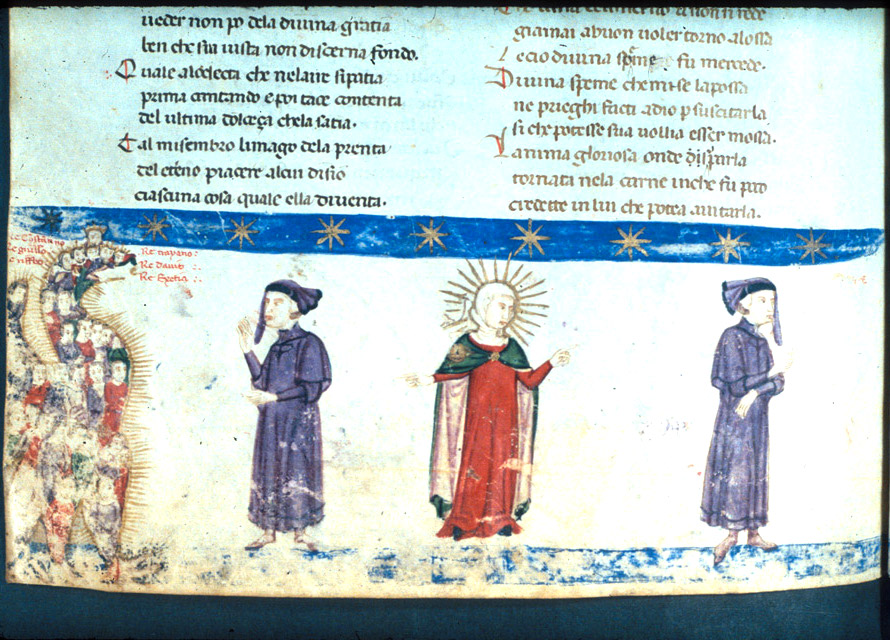 ueder non po dela diuina gratia
ben che sua uista non discerna fondo.
Quale alodecta che nelaire si spatia
prima cantando e poi tace contenta
del ultima dolceça che la satia.
Tal mi sembro limago dela prenta
del eterno piacere al cui disio
ciascuna cosa quale ella diuenta.
giamai abuon uoler torno alossa
e cio di uiua speme fu mercede.
Di uiua speme che mise la possa
ne prieghi facti adio p suscitarla
si che potesse sua uollia esser mossa.
Lanima gloriosa onde si parla
tornata nela carne in che fu poco
credette in lui che potea aiutarla.
Re Costantino
Re guillo
Re riffeo
Re traiano
Re Dauit
Re Ezetia